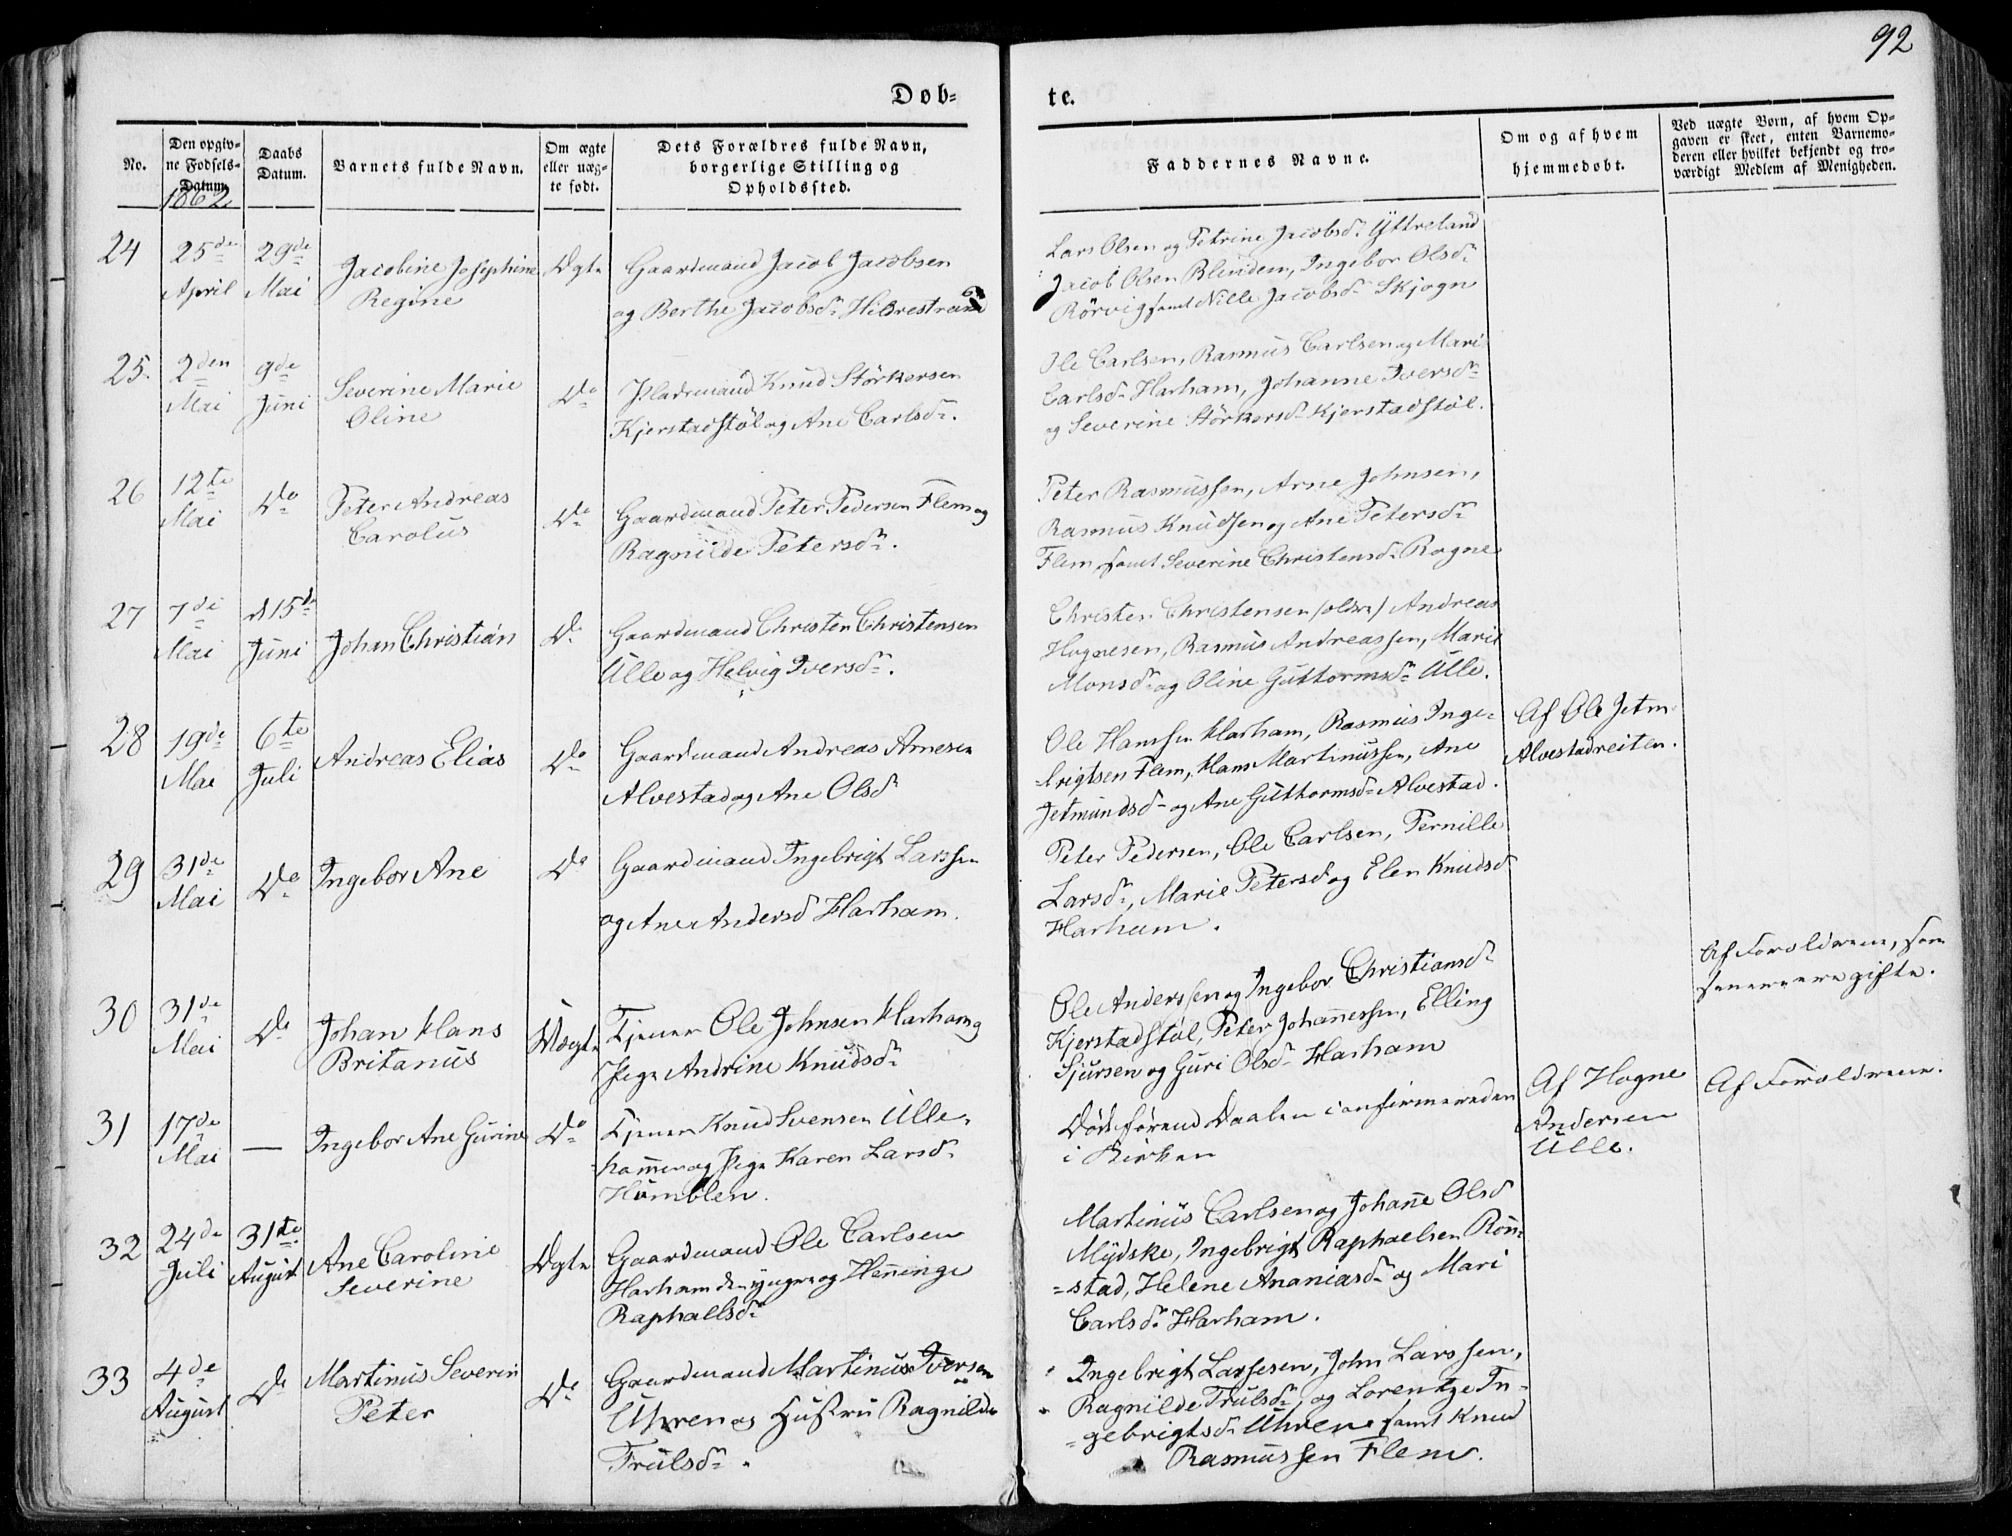 92
Døb=
te.
No.
Den opgiv=
ne Fødsels=
Datum.
1862
Daabs
Datum.
Barnets fulde Navn.
Om ægte
eller uæg=
te født.
Dets Forældres fulde Navn,
borgerlige Stilling og
Opholdssted.
Faddernes Navne.
Om og af hvem
hjemmedøbt.
Ved uægte Børn, af hvem Op=
gaven er skeet, enten Barnemo=
deren eller hvilket bekjendt og tro=
værdigt Medlem af Menigheden.
24
25de
April
29de
Mai
Jacobine Josephine
Regine
Ægte
Gaardmand Jacob Jacobsen
og Berthe Jacobsd. Hildrestrand
Lars Olsen og Petrine Jacobsd. Yttreland
Jacob Olsen Blindem, Ingebor Olsd.
Rörvig samt Nille Jacobsd. Skjogn
25.
2den
Mai
9de
Juni
Severine Marie
Oline
Do
Pladsmand Knud Störkersen
Kjerstadstöl og Ane Carlsd.
Ole Carlsen, Rasmus Carlsen og Mari
Carlsd. Harham, Johanne Iversd.
og Severine Störkersd. Kjerstadstöl.
26
12te
Mai
Do
Peter Andreas
Carolus
Do
Gaardmand Peter Pedersen Flem og
Ragnilde Petersd.
Peter Rasmussen, Arne Johnsen,
Rasmus Knudsen og Ane Petersd.
Flem, samt Severine Christensd. Rogne
27
7de
Mai
d 15de
Juni
Johan Christian
Do
Gaardmand Christen Christensen
Ulle og Helvig Iversd.
Christen Christensen (ældre) Andreas
Hognesen, Rasmus Andreassen, Marie
Monsd. og Oline Guttormsd. Ulle.
28
19de
Mai
6te
Juli
Andreas Elias
Do
Gaardmand Andreas Arnesen
Alvestad og Ane Olsd.
Ole Hanssen Harham, Rasmus Inge=
brigtsen Flem, Hans Martinussen, Ane
Jetmundsd. og Ane Guttormsd. Alvestad.
Af Ole Jetm.
Alvestadreiten.
29
31de
Mai
Do
Ingebor Ane
Do
Gaardmand Ingebrigt Larssen
og Ane Andersd Harham.
Peter Pedersen, Ole Carlsen, Pernille
Larsd., Marie Petersd og Elen Knudsd
Harham.
30
31de
Mai
Do
Johan Hans
Britanus
Uægte
Tjener Ole Johnsen Harham og
Pige Andrine Knudsd.
Ole Anderssen og Ingebor Christiansd.
Kjerstadstöl, Peter Johannessen, Elling
Sjursen og Guri Olsd. Harham
Af Forældrene, som
senere ere gifte.
31
17de
Mai
—
Ingebor Ane Gurine
Do
Tjener Knud Svensen Ulle=
hammer og Pige Karen Larsd.
Humblen.
Død förend Daaben confirmereden
i Kirken
Af Hogne
Andersen
Ulle.
Af Forældrene.
32
24de
Juli
31te
August
Ane Caroline
Severine
Ægte
Gaardmand Ole Carlsen
Harham den yngre og Henninge
Raphaelsd.
Martinus Carlsen og Johanne Olsd
Mydske, Ingebrigt Raphaelsen Rön=
=stad, Helene Ananiasd. og Mari
Carlsd. Harham.
33
4de
August
Do
Martinus Severin
Peter
Do
Gaardmand Martinus Iversen
Uhren og Hustru Ragnilde
Trulsd.
Ingebrigt Larsesen, John Larssen,
Ragnilde Trulsd., og Lorentze In=
=gebrigtsd. Uhren samt Knud
Rasmussen Flem.